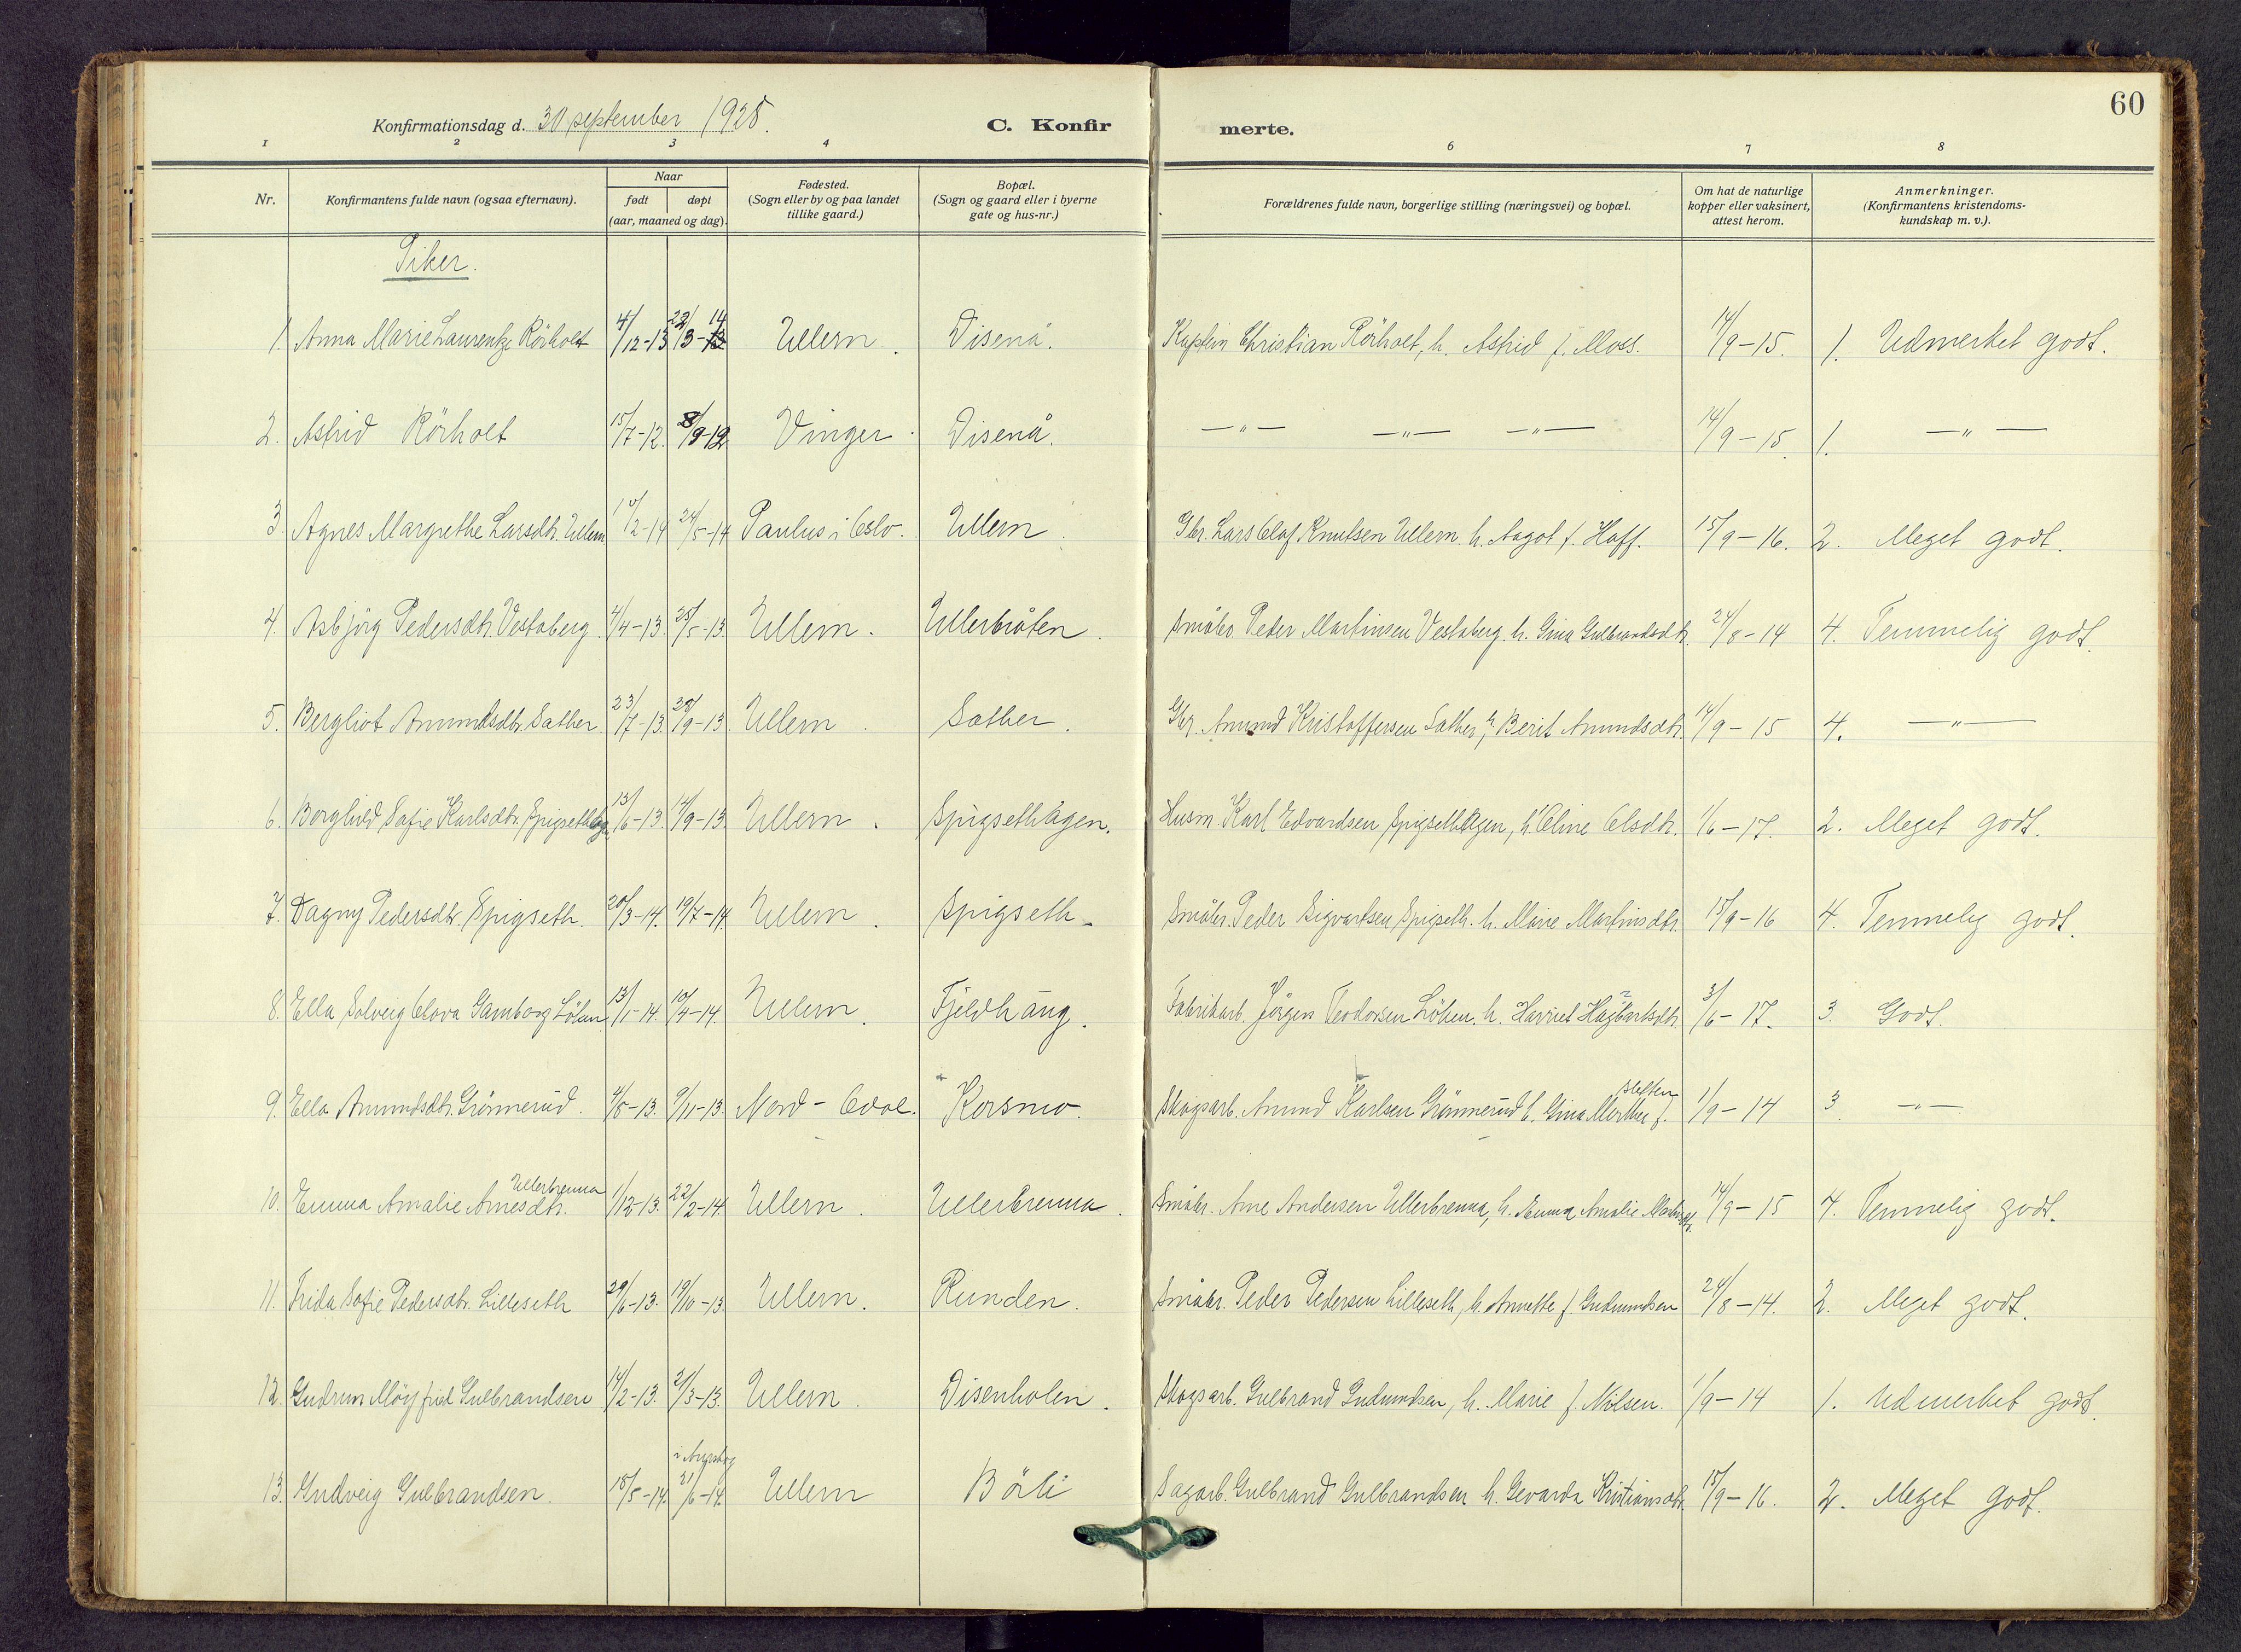 60
Konfirmationsdag d. 30 september 1928.
C. Konfirmerte.
1 2 3 4 6 7 8
Nr.
Konfirmantens fulde navn (ogsaa efternavn).
Naar
født døpt
(aar, maaned og dag).
Fødested.
(Sogn eller by og paa landet
tillike gaard.)
Bopæl.
(Sogn og gaard eller i byerne
gate og hus-nr.)
Forældrenes fulde navn, borgerlige stilling (næringsvei) og bopæl.
Om hat de naturlige
kopper eller vaksinert,
attest herom.
Anmerkninger.
(Konfirmantens kristendoms-
kundskap m. v.).
Piker.
1. Anna Marie Laurentze Rörholt 4/12-13 22/3-14 Ullern. Disenå. Kaptein Christian Rörholt, h. Astrid f. Moss. 14/9-15. 1. Udmerket godt.
2. Astrid Rörholt 15/7-12. 8/9-12 Vinger. Disenå. —"— —"— —"— 14/9-15. 1. —"—
3. Agnes Margrethe Larsdtr. Ullern 10/2-14 24/5-14 Paulus i Oslo. Ullern. Gbr. Lars Olaf Knutsen Ullern. h. Aagot f. Hoff. 15/9-16. 2. Meget godt.
4. Asbjörg Pedersdtr. Vestaberg. 4/4-13. 25/5-13. Ullern. Ullerbråten. Småbr. Peder Martinsen Vestaberg. h. Gina Gulbrandsdtr. 24/8-14 4. Temmelig godt.
5. Bergliot Amundsdtr. Sæther. 23/7-13. 28/9-13. Ullern. Sæther. Gbr. Amund Kristoffersen Sæther, h. Berit Amundsdtr. 14/9-15 4. —"—
6. Borghild Sofie Karlsdtr. 13/6-13. 14/9-13. Ullern. Spigsethhagen. Husm. Karl Edvardsen Spigsethhagen, h. Oline Olsdtr. 1/6-17. 2. Meget godt.
7. Dagny Pedersdtr. Spigseth. 20/3-14. 19/7-14. Ullern. Spigseth. Småbr. Peder Sigvartsen Spigseth. h. Marie Martinsdtr. 15/9-16 4. Temmelig godt.
8. Ella Solveig Olova Gamborg Löken 13/1-14. 10/4-14. Ullern. Fjeldhaug. Fabrikarb. Jörgen Teodorsen Löken. h. Harriet Hagbartsdtr. 3/6-17. 3. Godt.
9. Ella Amundsdtr. Grönnerud. 4/8-13. 9/11-13. Nord-Odal. Korsmo. Skogsarb. Amund Karlsen Grönnerud h. Gina Marthea f. Sletten 1/9-14 3. —"—
10. Emma Amalie Arnesdtr. Ullerbrenna 1/12-13. 22/2-14. Ullern. Ullerbrenna. Småbr. Arne Andersen Ullerbrenna, h. Emma Amalie 14/9-15 4. Temmelig godt.
11. Frida Sofie Pedersdtr. Lilleseth 29/6-13. 19/10-13. Ullern. Runden. Småbr. Peder Pedersen Lilleseth, h. Annette f. Gudmundsen 24/8-14. 2. Meget godt.
12. Gudrun Möyfrid Gulbrandsen 14/2-13. 21/3-13. Ullern. Disenholen. Skogsarb. Gulbrand Gudmundsen, h. Marie f. Nilsen. 1/9-14 1. Udmerket godt.
13. Gudveig Gulbrandsen. 18/5-14. i Aurskog 21/6-14. Ullern Bårli Sagarb. Gulbrand Gulbrandsen h. Gevarda Kristiansdtr. 15/9-16. 2. Meget godt.